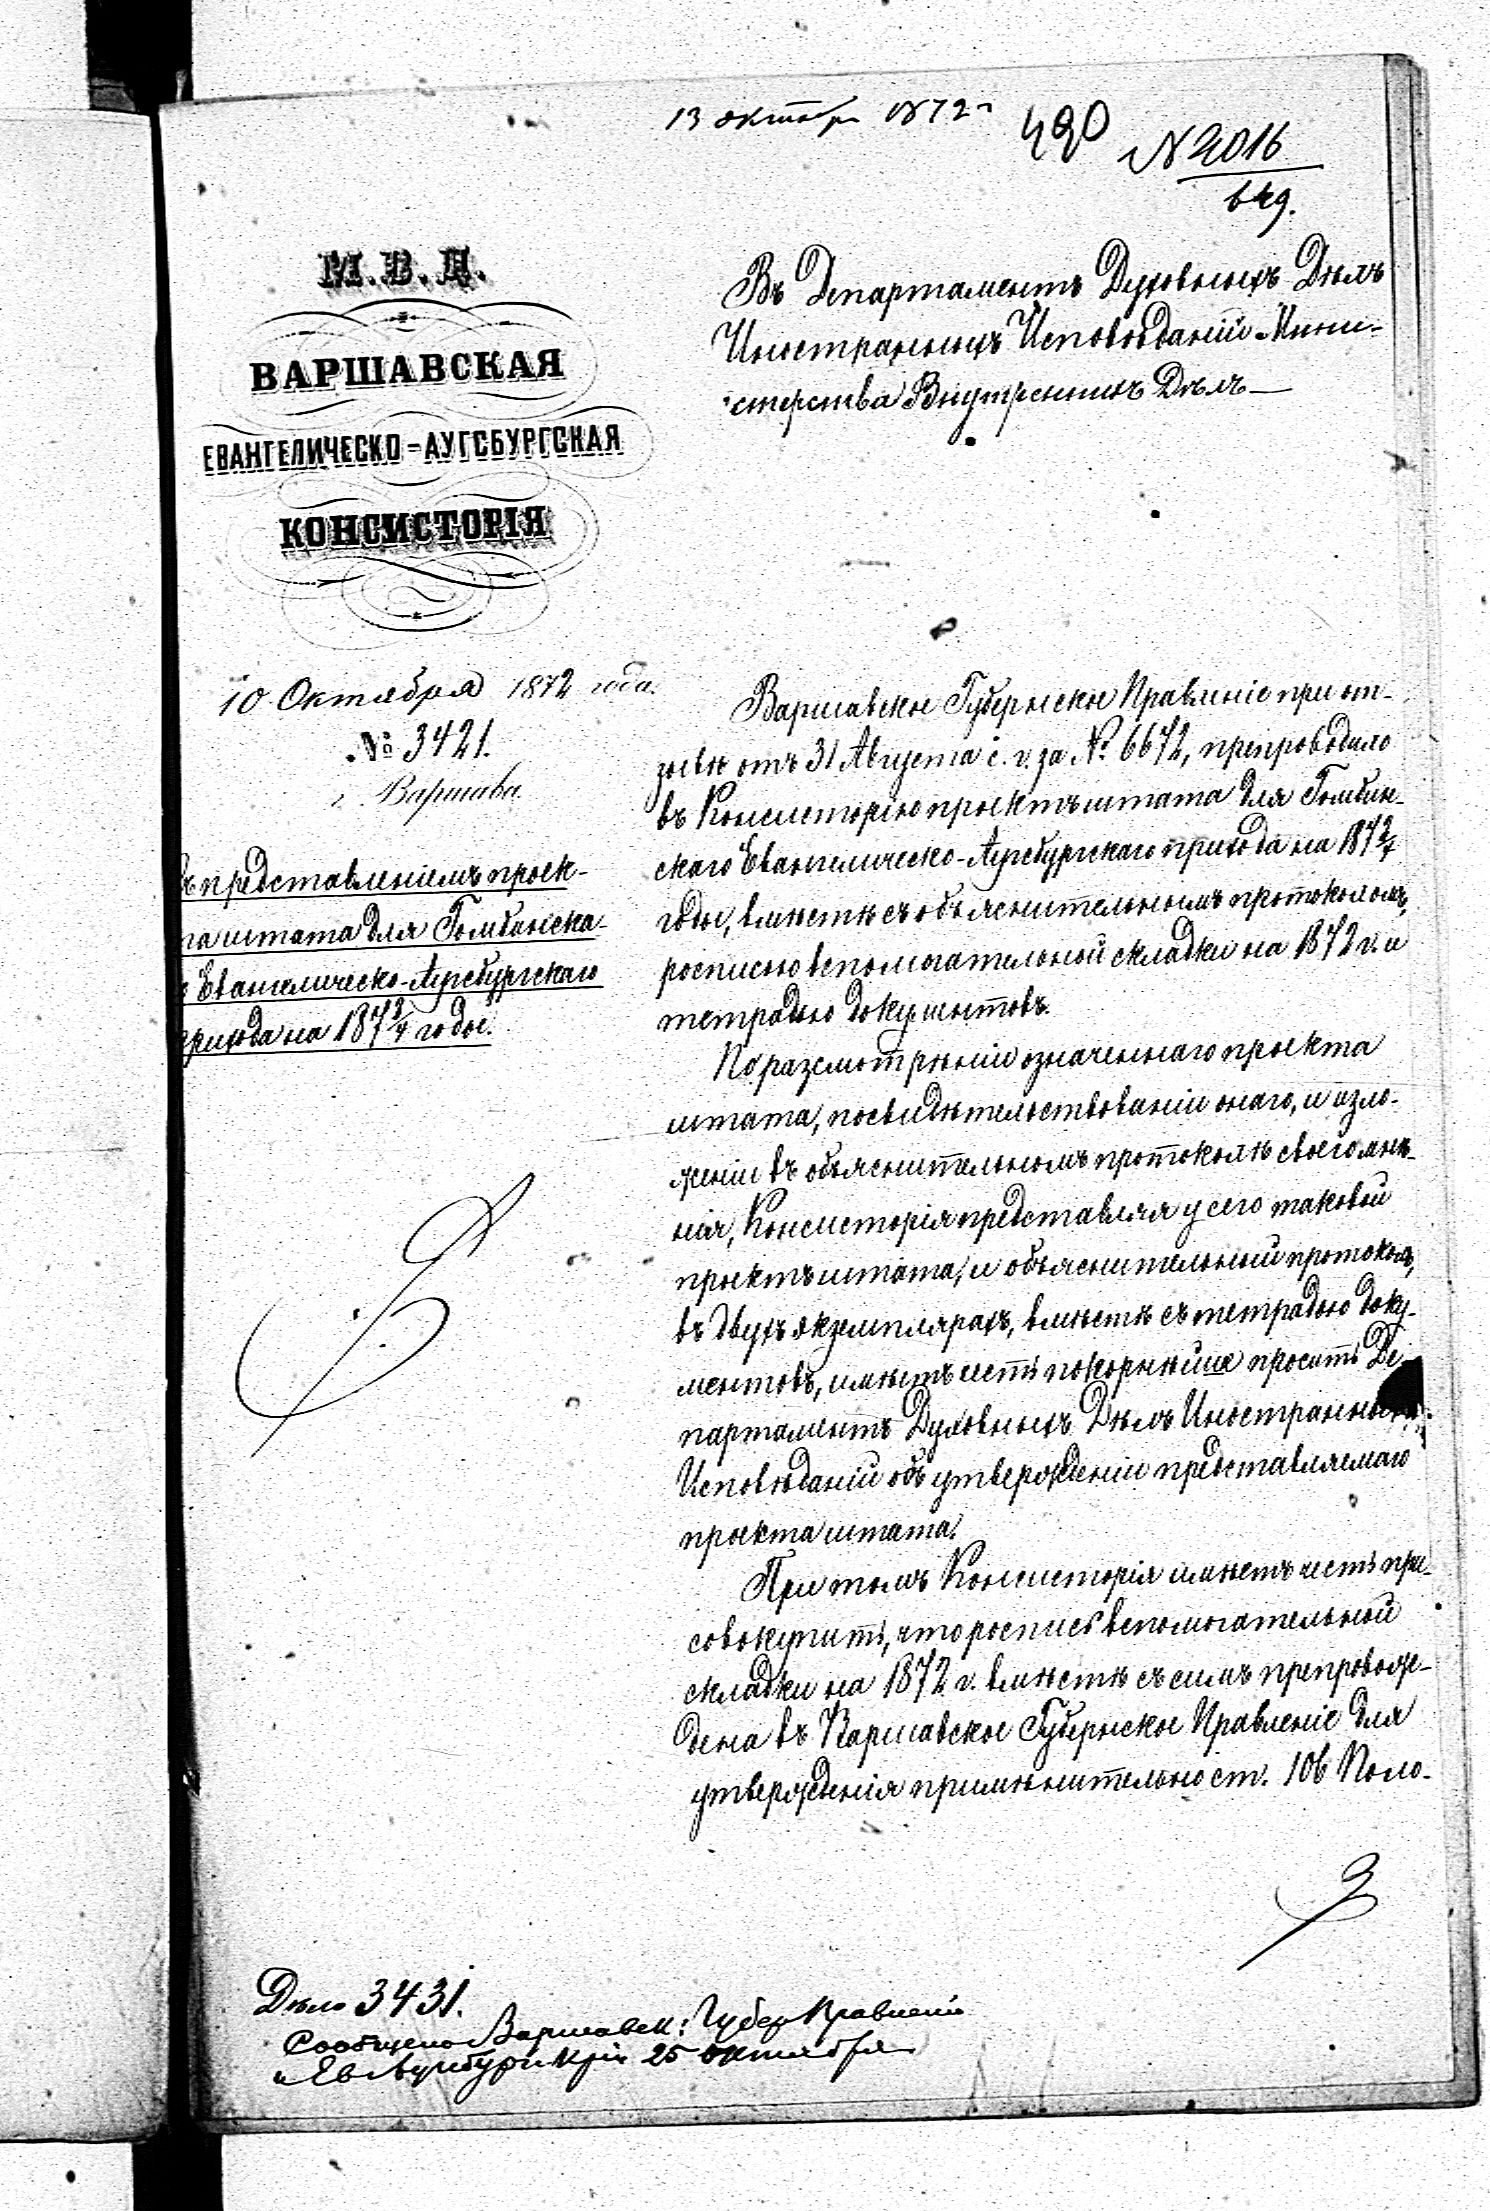 13 октября 1872 г
490
N 2016
649.
М. В. Д.
ВАРШАВСКАЯ
ЕВАНГЕЛИЧЕСКО-АУГСБУРГСКАЯ
КОНСИСТОРІЯ
10 Октября 1872 года.
№ 3421.
г. Варшава.
съ представленіемъ проек-
та штата для Гомбинска-
Евангелическо-Аугсбургскаго
прихода на 187 2/4 годы.
Въ Департаментъ Духовныхъ Дѣлъ
Иностранныхъ Исповѣданій Мини-
стерства Внутреннихъ Дѣлъ
Варшавское Губернское Правленіе при от-
зывѣ отъ 31 Августа с. г. за №. 6672, препроводило
въ Консисторію проектъ штата для Гомбин-
скаго Евангелическо-Аугсбургскаго прихода на 187 2/4
годы, вмѣстѣ съ объяснительнымъ протоколомъ,
росписью вспомогательной складки на 1872 г. и
тетрадью документовъ.
По разсмотрѣніи означеннаго проекта
штата, посвидѣтельствованіи онаго, и изло-
женіи въ объяснительномъ протоколѣ своего мнѣ-
нія, Консисторія представляя у сего таковой
проектъ штата, и объяснительный протоколъ,
въ двухъ экземплярахъ, вмѣстѣ съ тетрадью доку-
ментовъ, имѣетъ честь покорнѣйше просить Де-
партаментъ Духовныхъ Дѣлъ Иностранныхъ
Исповѣданій объ утвержденіи представляемаго
проекта штата.
При томъ Консисторія имѣетъ честь при-
совокупить, что роспись вспомогательной
складки на 1872 г. вмѣстѣ съ симъ препровож-
дена въ Варшавское Губернское Правленіе для
утвержденія примѣнительно ст. 106 Поло-
Дѣло 3431.
Сообщено Варшавск: Губер Правленію
и Ев Аугсбург 25 октября